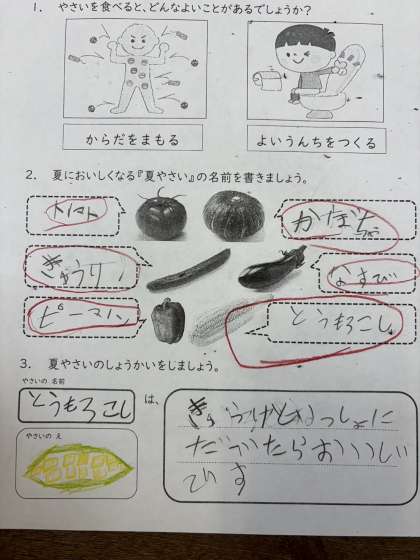 1. やさいを食べると、どんなよいことがあるでしょうか？
からだをまもる
よいうんちをつくる
2. 夏においしくなる『夏やさい』の名前を書きましょう。
トマト
かぼちゃ
きゅうり
なすび
ピーマン
とうもろこし
3. 夏やさいのしょうかいをしましょう。
やさいの 名前
とうもろこし
は、
やさいの え
です